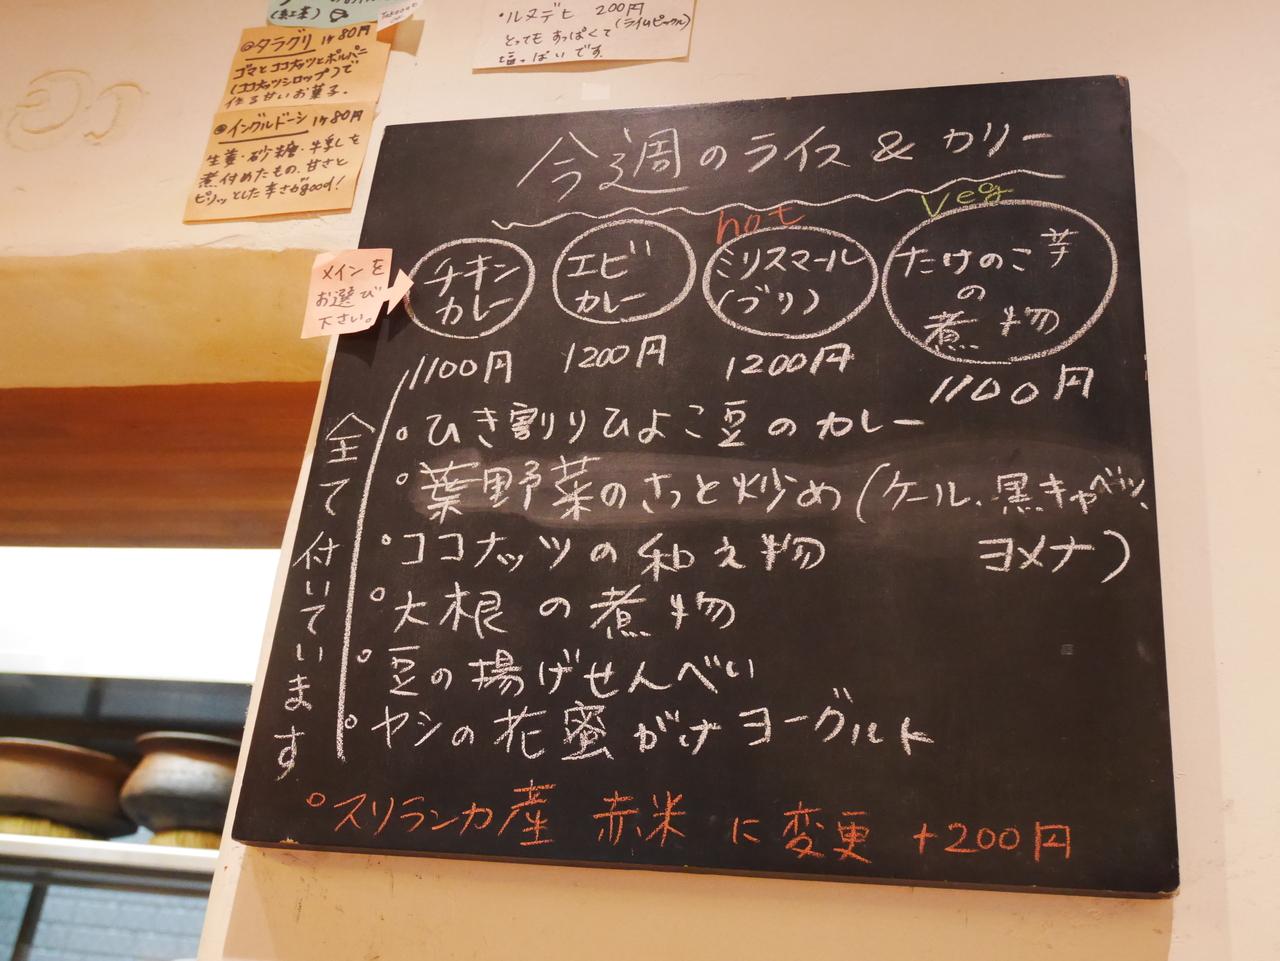 (紅茶)
Takeout OK
タラグリ 1ヶ80円
ゴマとココナッツとポルパニ
(ココナッツシロップ)で
作る甘いお菓子.
イングルドーシ 1ヶ80円
生姜・砂糖・牛乳を
煮付めたもの.甘さと
ピリッとした辛さがgood!
・ルヌデヒ 200円
(ライムピックル)
とってもすっぱくて
塩っぱいです.
今週のライス & カリー
hot
Veg
メインを
お選び
下さい。
チキン
カレー
1100円
エビ
カレー
1200円
ミリスマール
(ブリ)
1200円
たけのこ芋
の
煮物
1100円
全て付いています
。ひき割りひよこ豆のカレー
。葉野菜のさっと炒め(ケール、黒キャベツ、
ヨメナ)
。ココナッツの和え物
。大根の煮物
。豆の揚げせんべい
。ヤシの花蜜がけヨーグルト
。スリランカ産 赤米 に変更 +200円